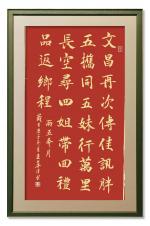 文昌再次傳佳訊胖
五攜同五妹行萬里
長空尋四姐帶回禮
品返鄉程
丙五年月